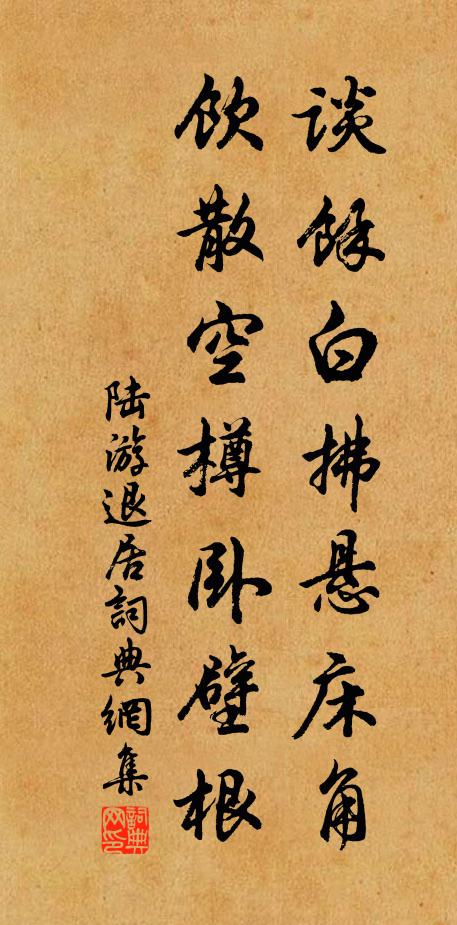 谈餘白拂悬床角
飲散空樽卧壁根
陆游退居詞典網集
詞典网印